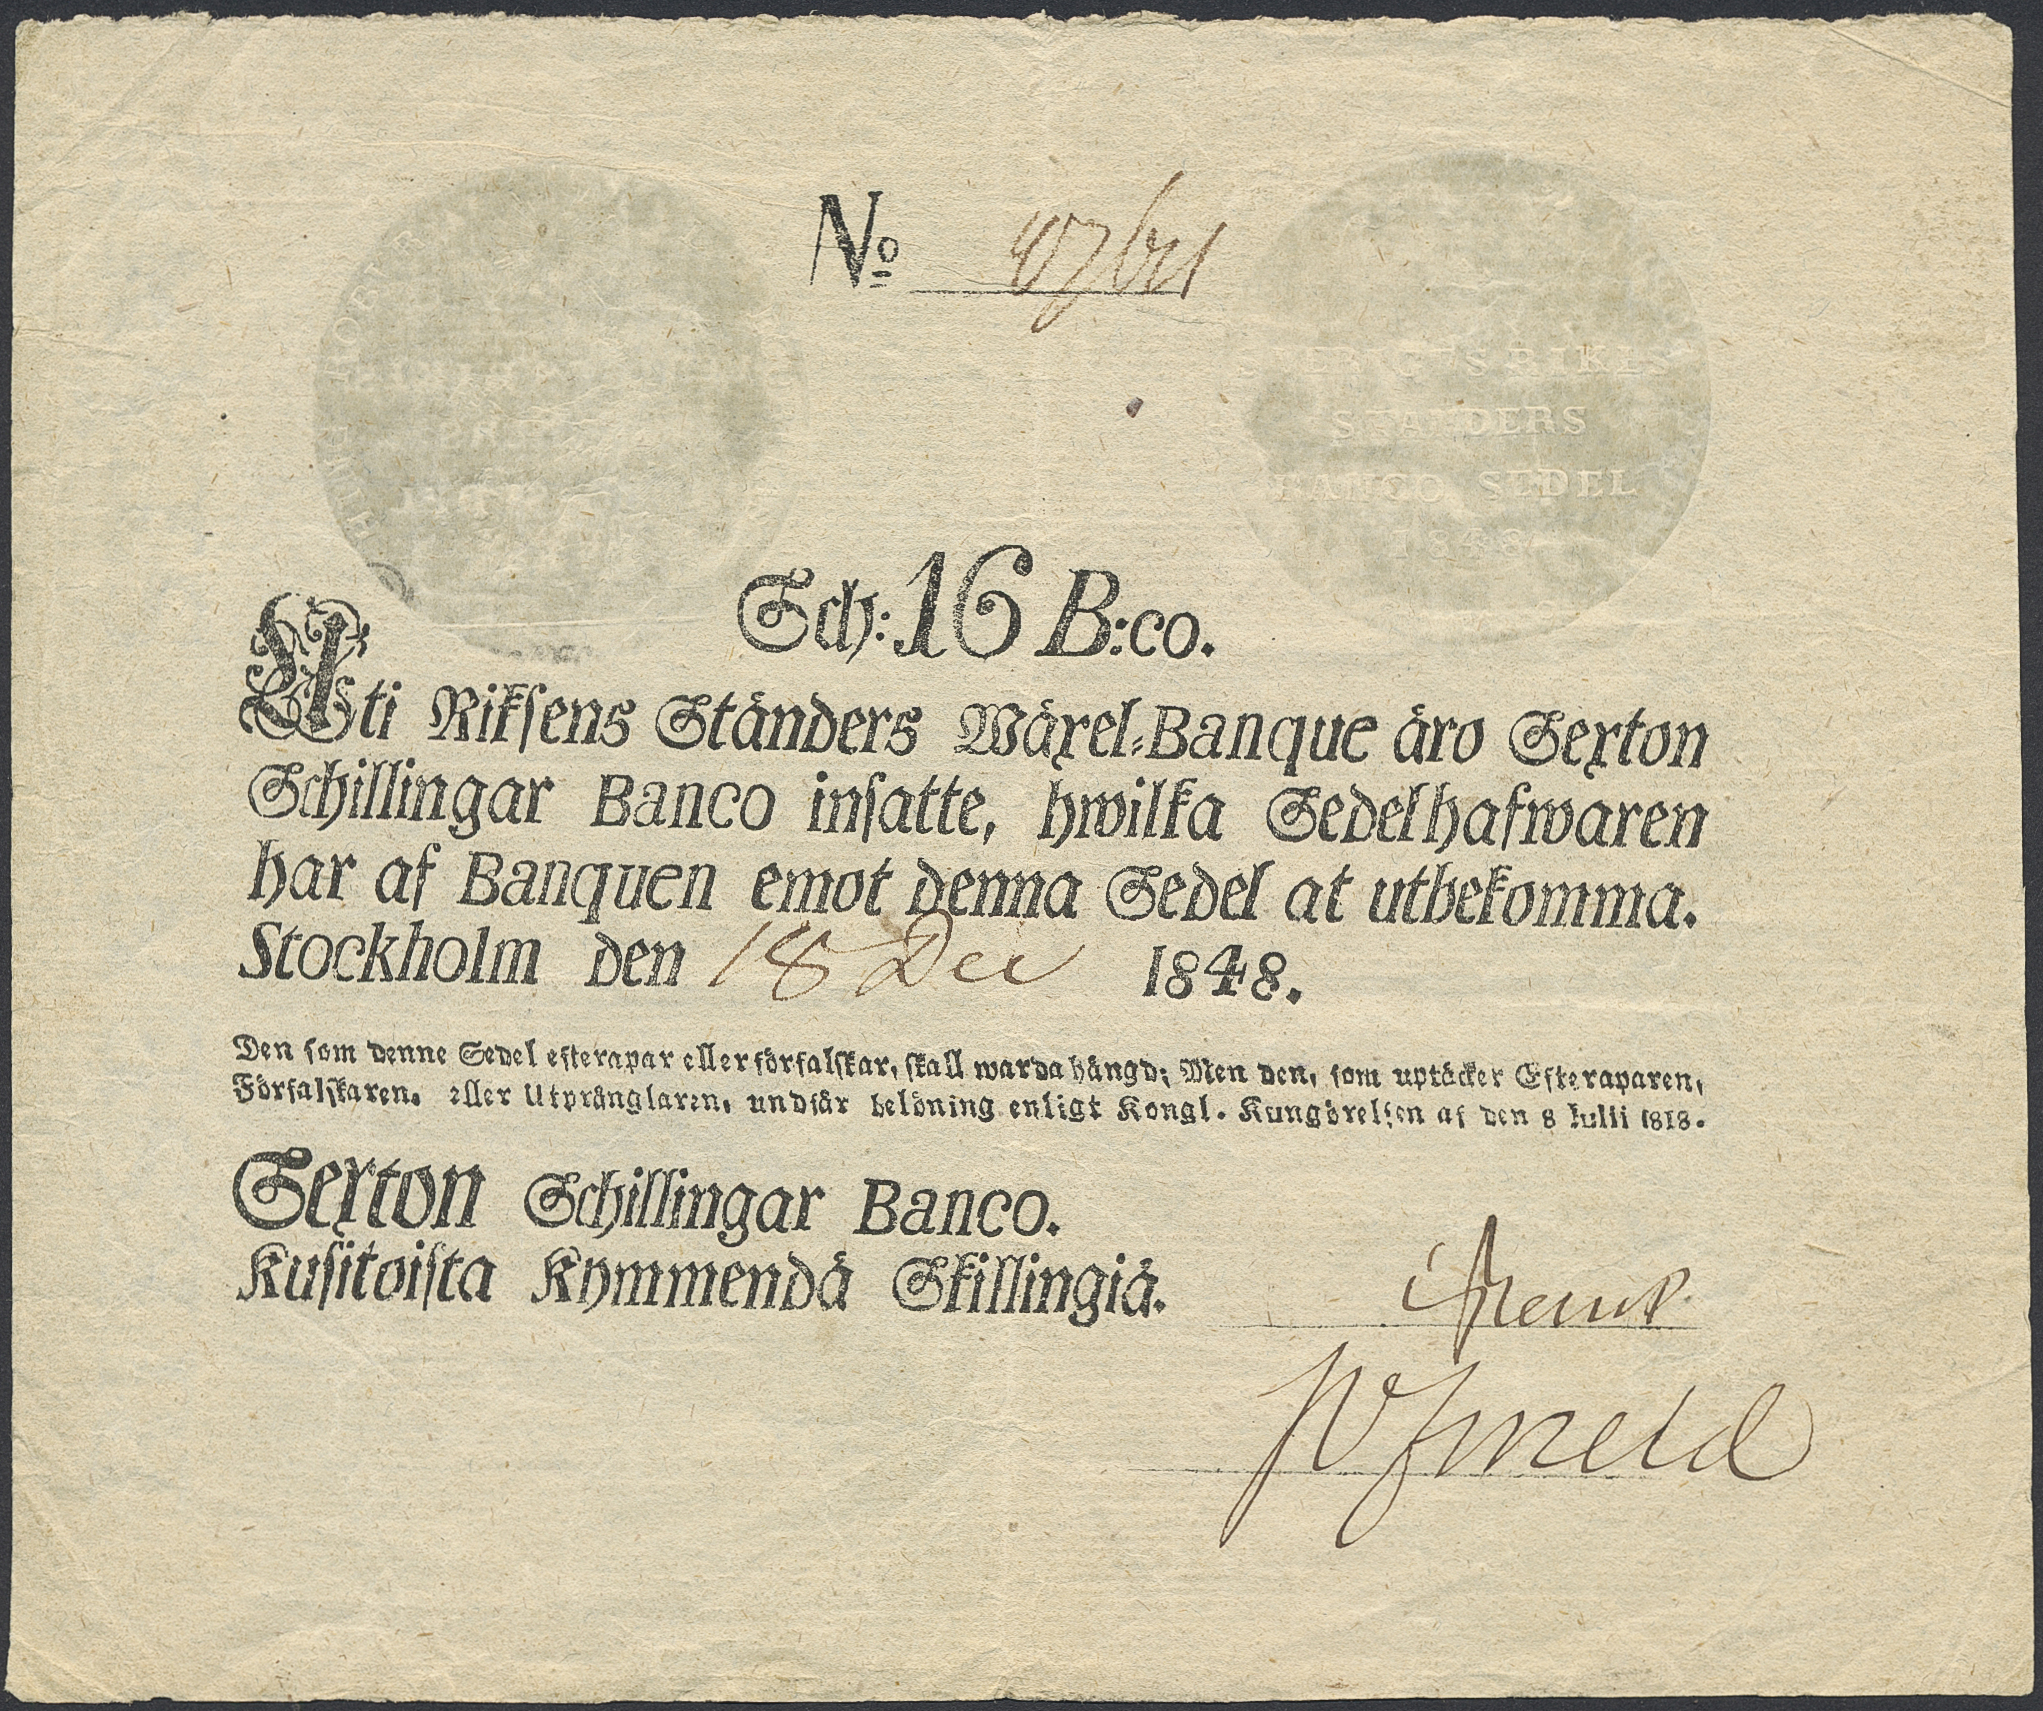 No
SVERIGES RIKES
STÄNDERS
BANCO SEDEL
1848
Sch: 16 B:co.
Uti Riksens Ständers Wäxel-Banque äro Sexton
Schillingar Banco insatte, hwilka Sedelhafwaren
har af Banquen emot denna Sedel at utbekomma.
Stockholm den 18 Dec 1848.
Den som denne Sedel efterapar eller förfalskar, skall warda hängd; Men den, som uptäcker Efteraparen,
Förfalskaren, eller Utprånglaren, undfår belöning enligt Kongl. Kungörelsen af den 8 Julii 1818.
Sexton Schillingar Banco.
Kusitoista Kymmendä Skillingiä.